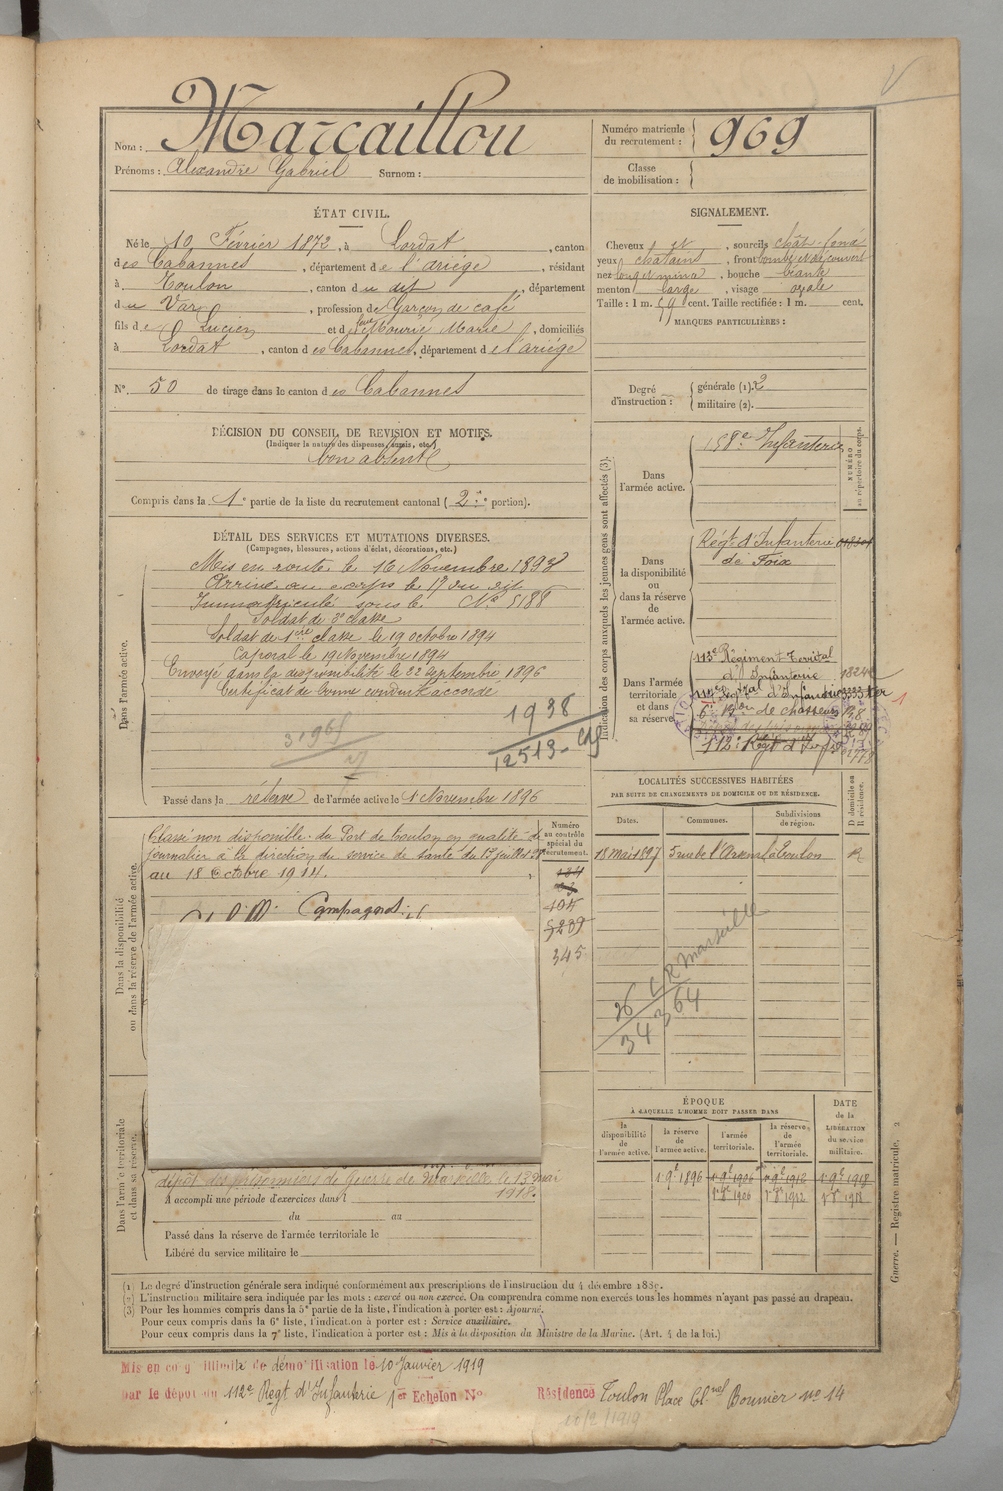 Nom : Marcaillou
Prénoms : Alexandre Gabriel Surnom :
Numéro matricule du recrutement : 969
Classe de mobilisation :
ÉTAT CIVIL.
Né le 10 Février 1872, à Lordat, canton
des Cabannes, département de l'ariège, résidant
à Toulon, canton du dit, département
du Var, profession de Garçon de café
fils de Lucien et de Mouric Marie, domiciliés
à Lordat, canton des Cabannes, département de l'ariège
N° 50 de tirage dans le canton des Cabannes
SIGNALEMENT.
Cheveux et, sourcils chât. foncé
yeux chatains, front bombé et découvert
nez long et mince, bouche béante
menton large, visage ovale
Taille : 1 m. 59 cent. Taille rectifiée : 1 m. cent.
MARQUES PARTICULIÈRES :
Degré d'instruction : générale (1). 2
militaire (2).
DÉCISION DU CONSEIL DE REVISION ET MOTIFS.
(Indiquer la nature des dispenses, sursis, etc.)
bon absent
Compris dans la 1e partie de la liste du recrutement cantonal (2e portion).
DÉTAIL DES SERVICES ET MUTATIONS DIVERSES.
(Campagnes, blessures, actions d'éclat, décorations, etc.)
Dans l'armée active.
Mis en route le 16 Novembre 1893
Arrivé au corps le 17 du dit
Immatriculé sous le No 5188
Soldat de 2e classe
Soldat de 1ère classe le 19 octobre 1894
Caporal le 19 Novembre 1894
Envoyé dans la disponibilité le 22 Septembre 1896
Certificat de bonne conduite accordé
1938
12513
Passé dans la réserve de l'armée active le 1 Novembre 1896
Indication des corps auxquels les jeunes gens sont affectés (3).
NUMÉRO au répertoire du corps.
Dans l'armée active.
158e Infanterie
Dans la disponibilité ou dans la réserve de l'armée active.
Régt d'Infanterie
de Foix
Dans l'armée territoriale et dans sa réserve
113e Régiment Territal
d'Infanterie
6e Bon de chasseurs
112e Régt d'Infie
LOCALITÉS SUCCESSIVES HABITÉES
PAR SUITE DE CHANGEMENTS DE DOMICILE OU DE RÉSIDENCE.
Dates. Communes. Subdivisions de région. D domicile ou R résidence.
18 Mai 1897 5 rue de l'Arsenal Toulon R
26 CR Marseille
34364
Dans la disponibilité ou dans la réserve de l'armée active.
Numéro au contrôle spécial du recrutement.
Classé non disponible du Port de Toulon en qualité de
journalier à la direction du service de santé du 15 juillet
au 18 Octobre 1914.
Campagnes :
105
5289
345
Dans l'armée territoriale et dans sa réserve.
dépôt des prisonniers de guerre de Marseille le 13 mai
1918.
A accompli une période d'exercices dans l
du au
Passé dans la réserve de l'armée territoriale le
Libéré du service militaire le
ÉPOQUE
À LAQUELLE L'HOMME DOIT PASSER DANS
la disponibilité de l'armée active.
la réserve de l'armée active.
l'armée territoriale.
la réserve de l'armée territoriale.
DATE de la LIBÉRATION du service militaire.
1 9e 1896 1 9e 1906 1 9e 1912 1 9e 1918
Guerre. — Registre matricule. 2
(1) Le degré d'instruction générale sera indiqué conformément aux prescriptions de l'instruction du 4 décembre 1889.
(2) L'instruction militaire sera indiquée par les mots : exercé ou non exercé. On comprendra comme non exercés tous les hommes n'ayant pas passé au drapeau.
(3) Pour les hommes compris dans la 5e partie de la liste, l'indication à porter est : Ajourné.
Pour ceux compris dans la 6e liste, l'indication à porter est : Service auxiliaire.
Pour ceux compris dans la 7e liste, l'indication à porter est : Mis à la disposition du Ministre de la Marine. (Art. 4 de la loi.)
Mis en congé illimité de démobilisation le 10 Janvier 1919
par le dépôt du 112e Régt d'Infanterie 1er Echelon N° Résidence Toulon Place Col.nel Bonnier no 14